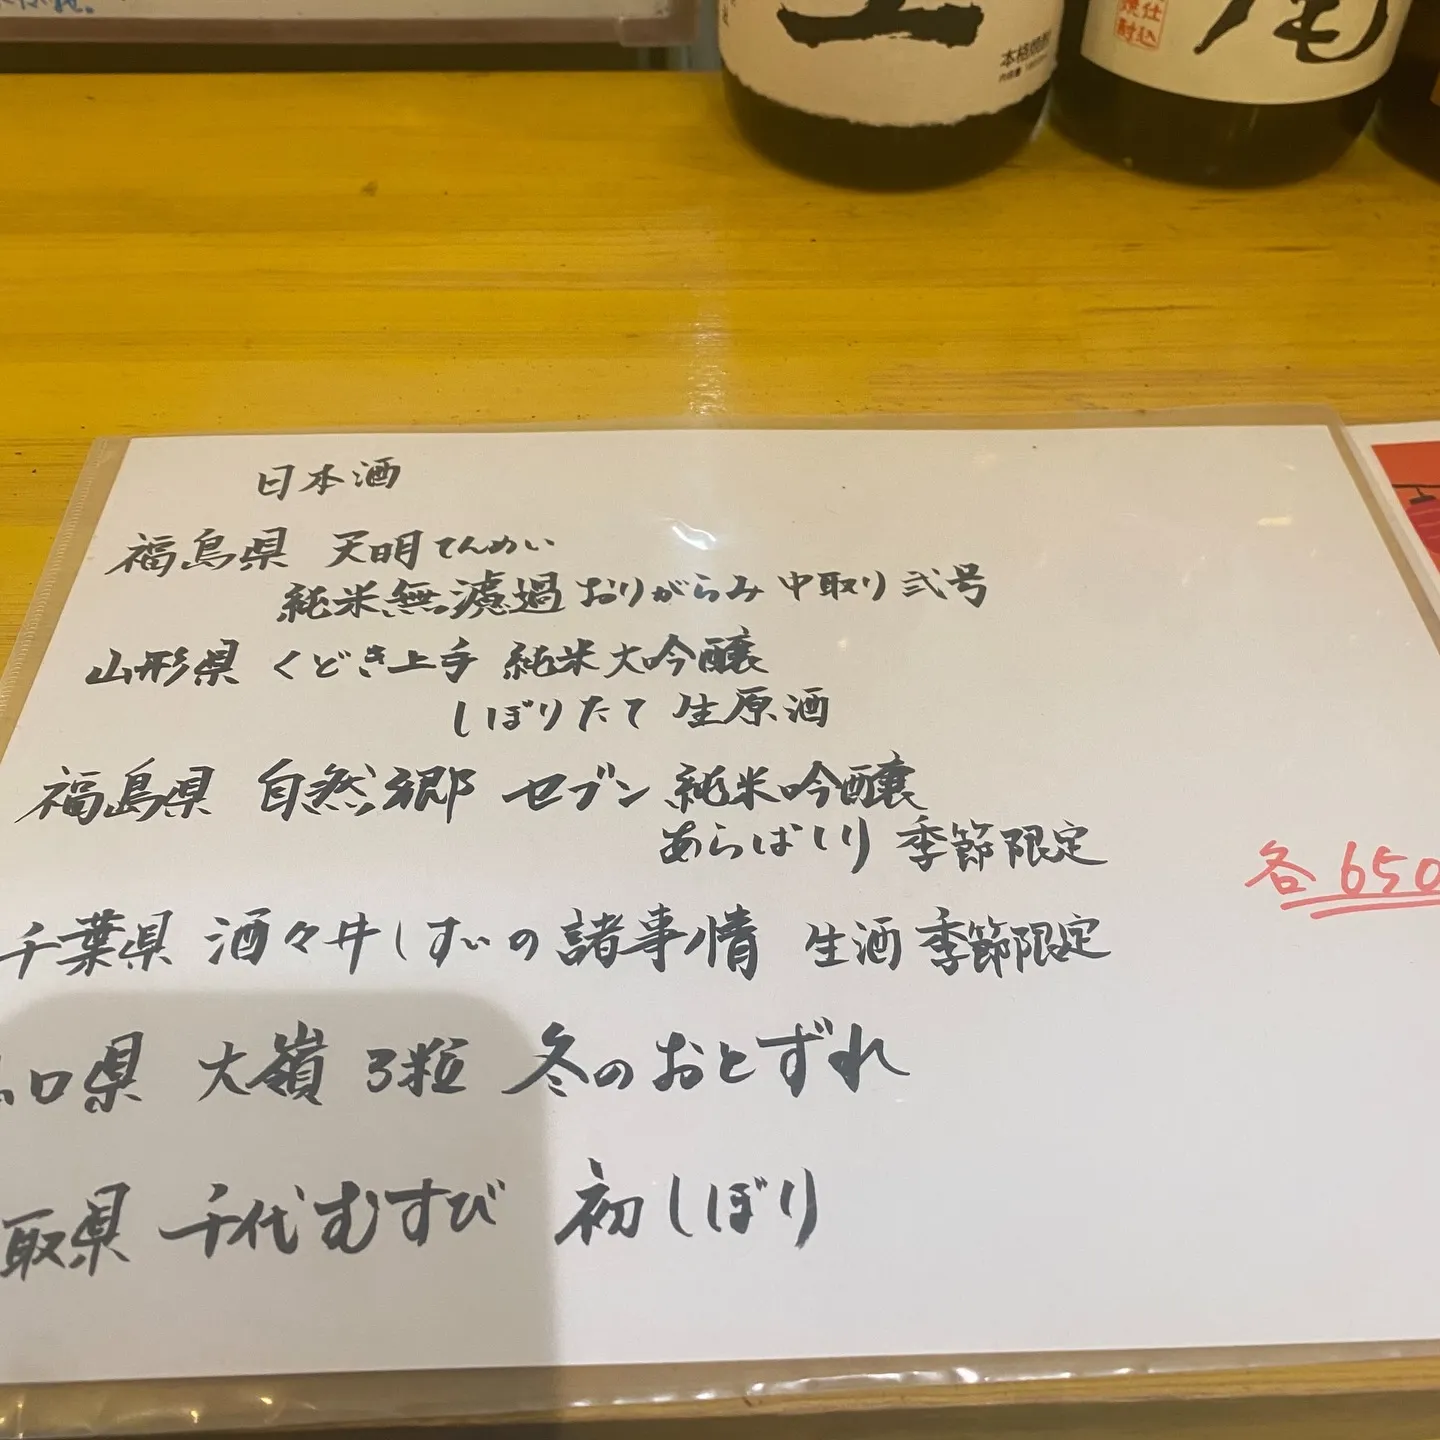 本格焼酎
仕込
日本酒
福島県 天明てんめい
純米無濾過おりがらみ 中取り 弐号
山形県 くどき上手 純米大吟醸
しぼりたて 生原酒
福島県 自然郷 セブン 純米吟醸
あらばしり 季節限定
各650
千葉県 酒々井しすいの諸事情 生酒 季節限定
口県 大嶺 3粒 冬のおとずれ
取県 千代むすび 初しぼり